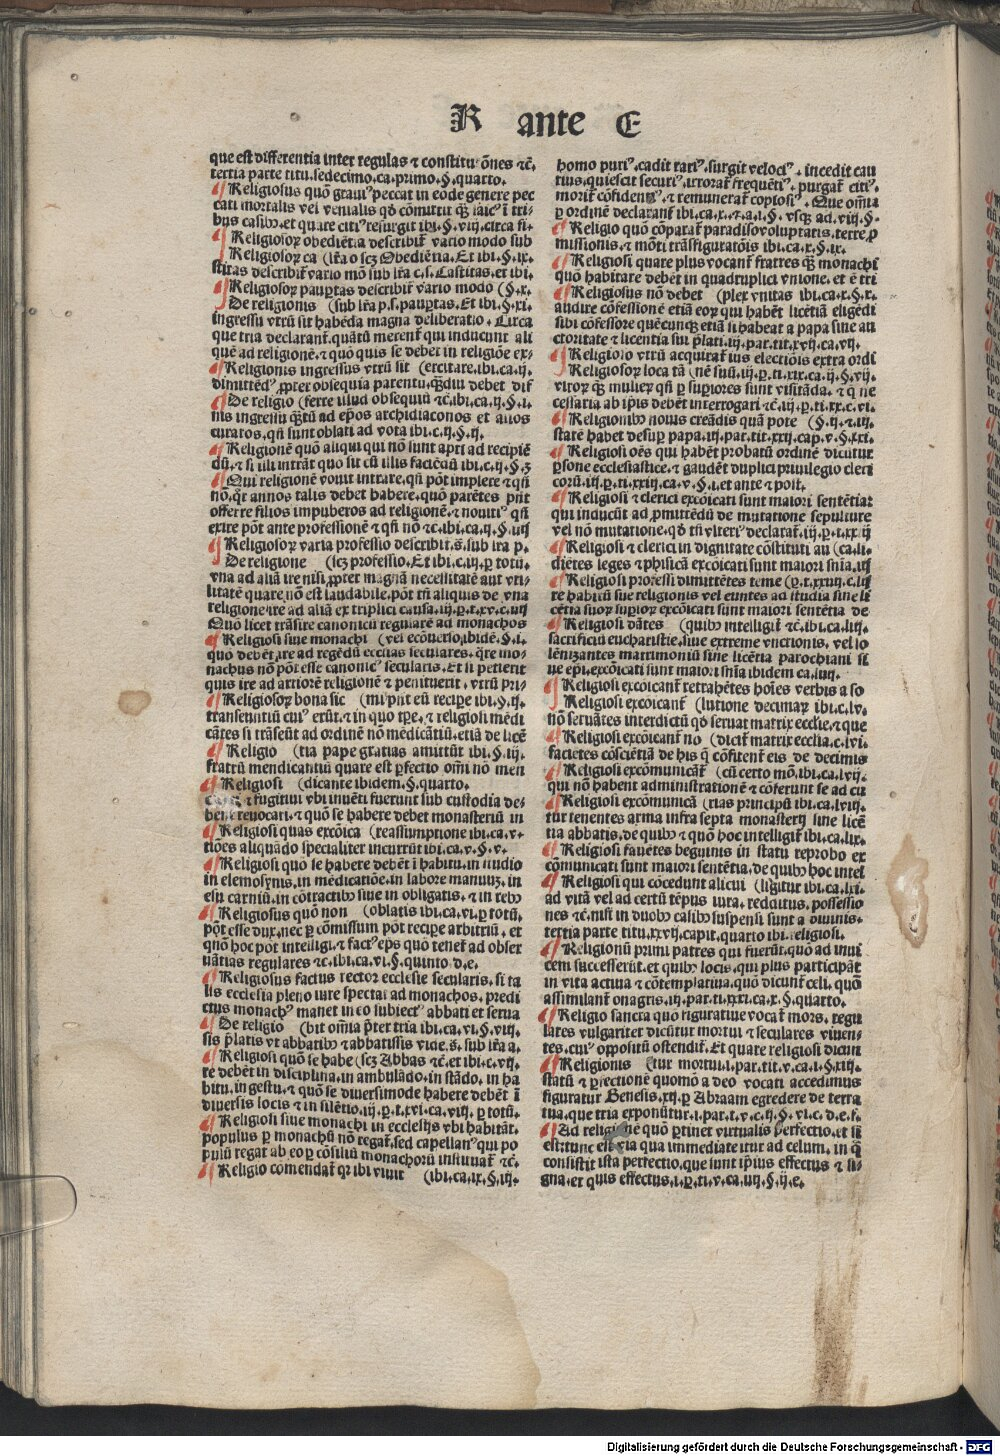 R ante E
que est differentia inter regulas ⁊ constitutõnes ⁊c̃.
tertia parte titu. sedecimo. ca. primo. §. quarto.
¶ Religiosus quõ grauiꝰ peccat in eodẽ genere pec
cati mortalis vel venialis qđ cõmittit q̃ʒ laicꝰ ĩ tri-
bus casibꝰ. et quare citiꝰ resurgit ibi. §. viij. circa fi-
¶ Religiosoꝝ obediẽtia describit᷑ vario modo sub
Religiosoꝝ ca (lr̃a o scʒ Obediẽtia. Et ibi. §. ix.
stitas describit᷑ vario mõ sub lr̃a c. s. Castitas. et ibi.
¶ Religiosoꝝ pauꝑtas describit᷑ vario modo (§. x.
De religionis (sub lr̃a p. s. pauꝑtas. Et ibi. §. xi.
ingressu vtrũ sit habẽda magna deliberatio. Circa
que tria declarant᷑. quãtũ merent᷑ qui inducunt ali
quẽ ad religionẽ. ⁊ quo quis se debet in religiõe ex-
¶ Religionis ingressus vtrũ sit (ercitare. ibi. ca. ij.
dimittẽdꝰ ꝓpter obsequia parentũ. q̃ʒdiu debet dif
¶ De religio (ferre illud obsequiũ ⁊c̃. ibi. ca. ij. §. i.
nis ingressu q̃ʒtũ ad ep̃os archidiaconos et alios
curatos. qñ sunt oblati ad vota ibi. c. ij. §. ij.
¶ Religionẽ quõ aliqui qui nõ sunt apti ad recipiẽ
dũ. ⁊ si illi intrãt quo sit cũ illis faciẽdũ ibi. c. ij. §. 3
¶ Qui religionẽ vouit intrare. qñ põt implere ⁊ qñ
nõ. q̃t annos talis debet habere. quõ parẽtes pñt
offerre filios impuberes ad religionẽ. ⁊ nouitiꝰ qñ
exire põt ante professionẽ ⁊ qñ nõ ⁊c̃. ibi. ca. ij. §. iiij
¶ Religiosoꝝ varia professio describit᷑. s̃. sub lr̃a p.
De religione (scʒ professio. Et ibi. c. iij. ꝑ totũ.
vna ad aliã ire nisi ꝓpter magnã necessitatẽ aut vti-
litatẽ quare nõ est laudabile. põt tñ aliquis de vna
religione ire ad aliã ex triplici causa. iij. ꝑ. t. xv. c. iiij
Quo licet trãsire canonicũ regularẽ ad monachos
¶ Religiosi siue monachi (vel ecõuerso. ibidẽ. §. i.
quo debẽt ire ad regẽdũ ecctias seculares. q̃re mo-
nachus nõ põt esse canonicꝰ secularis. Et si petierit
quis ire ad artiorẽ religionẽ ⁊ penituerit. vtrũ pri-
¶ Religiosoꝝ bona sic (mi pñt eũ recipe ibi. §. ij.
transeuntiũ cuiꝰ erũt. ⁊ in quo tꝑe. ⁊ religiosi medi
cãtes si trãseũt ad ordinẽ nõ medicãtiũ. etiã de licẽ
¶ Religio (tia pape gratias amittũt ibi. §. iij.
fratrũ mendicantiũ quare est ꝑfectio om̃i nõ men
¶ Religiosi (dicante ibidem. §. quarto.
⁊ fugitiui vbi inuẽti fuerunt sub custodia de-
bent reuocari. ⁊ quõ se habere debet monasteriũ in
¶ Religiosi quas excõica (reassumptione ibi. ca. v.
tiões aliquãdo specialiter incurrũt ibi. ca. v. §. v.
¶ Religiosi quõ se habere debẽt ĩ habitu. in studio
in elemosynis. in medicatiõe. in labore manuuʒ. in
esu carniũ. in cõtractibꝰ siue in obligatis. ⁊ in rebꝰ
¶ Religiosus quõ non (oblatis ibi. ca. vi. ꝑ totũ.
põt esse dux. nec ꝑ cõmissum põt recipe arbitriũ. et
quõ hoc põt intelligi. ⁊ factꝰ eps quõ tenet᷑ ad obser
uãtias regulares ⁊c̃. ibi. ca. vi. §. quinto. d. e.
¶ Religiosus factus rector ecclesie secularis. si ta
lis ecclesia pleno iure spectat ad monachos. predi
ctus monachꝰ manet in eo subiectꝰ abbati et serua
¶ De religio (bit om̃ia p̃ter tria ibi. ca. vi. §. viij.
sis p̃latis vt abbatibꝰ ⁊ abbatissis vide. s̃. sub lr̃a a.
¶ Religiosi quõ se habe (scʒ Abbas ⁊c̃. et ibi. c. vij.
re debẽt in disciplina. in ambulãdo. in stãdo. in ha
bitu. in gestu. ⁊ quõ se diuersimode habere debẽt ĩ
diuersis locis ⁊ in silẽtio. iij. ꝑ. t. xvi. ca. viij. ꝑ totũ.
¶ Religiosi siue monachi in ecclesijs vbi habitãt.
populus ꝑ monachũ nõ regat᷑. sed capellanꝰ qui po
pulũ regat ab eo ꝑ cõsiliũ monachorũ instituat᷑ ⁊c̃.
¶ Religio comendat᷑ qꝛ ibi viuit (ibi. ca. ix. §. iij.
homo puriꝰ. cadit rariꝰ. surgit velociꝰ. incedit cau
tius. quiescit securiꝰ. irrorat᷑ frequẽtiꝰ. purgat᷑ citiꝰ.
morit᷑ cõfidentiꝰ. ⁊ remunerat᷑ copiosiꝰ. Que om̃ia
ꝑ ordinẽ declarant᷑ ibi. ca. x. ⁊. a. i. §. vsqʒ ad. viij. §.
¶ Religio quõ cõparat᷑ paradiso voluptatis. terre ꝓ
missionis. ⁊ mõti trãsfiguratõis ibi. ca. x. §. ix.
¶ Religiosi quare plus vocant᷑ fratres q̃ʒ monachi
quõ habitare debẽt in quadruplici vnione. et ẽ tri
¶ Religiosus nõ debet (plex vnitas ibi. ca. x. §. x.
audire cõfessionẽ etiã eoꝝ qui habẽt licẽtiã eligẽdi
sibi cõfessorẽ quẽcunqʒ. etiã si habeat a papa sine au
ctoritate ⁊ licentia sui p̃lati. iij. par. tit. xvij. ca. vij.
¶ Religioso vtrũ acquirat᷑ ius electiõis extra ordi
Religiosoꝝ loca tã (nẽ suũ. iij. ꝑ. ti. xix. ca. ij. §. vij.
viroꝝ q̃ʒ mulieꝝ qñ ꝑ superiores sunt visitãda. ⁊ q̃ ne
cessaria ab ip̃is debẽt interrogari ⁊c̃. iij. ꝑ. ti. xx. c. vi.
¶ Religionibꝰ nouis creãdis quã pote (§. ij. ⁊. iij.
statẽ habet desuꝑ papa. iij. par. tit. xxij. cap. v. §. xxi.
¶ Religiosi oẽs qui habẽt probatũ ordinẽ dicũtur
ꝑsone ecclesiastice. ⁊ gaudẽt duplici priuilegio cleri
corũ. iij. ꝑ. ti. xxiij. ca. v. §. i. et ante ⁊ post.
¶ Religiosi ⁊ clerici excõicati sunt maiori sentẽtia
qui inducũt ad ꝓmittẽdũ de mutatione sepulture
vel nõ mutatione. qđ tñ vlteriꝰ declarat᷑. iij. ꝑ. t. xxiij
¶ Religiosi ⁊ clerici in dignitate cõstituti au (ca. li.
diẽtes leges ⁊ phisicã excõicati sunt maiori snĩa. iij
¶ Religiosi professi dimittẽtes teme (ꝑ. t. xxiiij. c. lij
re habitũ sue religionis vel euntes ad studia sine li
cẽtia suoꝝ superioꝝ excõicati sunt maiori sentẽtia de
¶ Religiosi dãtes (quibꝰ intelligit᷑ ⁊c̃. ibi. ca. liij.
sacrificiũ eucharistie. siue extreme vnctionis. vel so
lẽnizantes matrimoniũ sine licẽtia parochiani si
ue ep̃i. excõicati sunt maiori snĩa ibidem ca. liiij.
¶ Religiosi excõicant᷑ retrahẽtes hoĩes verbis a so
Religiosi excõicant᷑ (lutione decimaꝝ ibi. c. lv.
nõ seruãtes interdictũ qđ seruat matrix ecctie. ⁊ que
¶ Religiosi excõicant᷑ no (dicit᷑ matrix ecctia. c. lvi.
facientes cõsciẽtiã de his q̃ cõfitent᷑ eis de decimis
¶ Religiosi excõmunicãt᷑ (cũ certo mõ. ibi. ca. lvij.
qui nõ habent administrationẽ ⁊ cõferunt se ad cu
¶ Religiosi excõmunicã (rias principũ ibi. ca. lviij.
tur tenentes arma infra septa monasterij sine licẽ
tia abbatis. de quibꝰ ⁊ quõ hoc intelligit᷑ ibi. ca. lix.
¶ Religiosi fauẽtes beguinis in statu reprobo ex
cõmunicati sunt maiori sentẽtia. de quibꝰ hoc intel
¶ Religiosi qui cõcedunt alicui (ligitur ibi. ca. lxi.
ad vitã vel ad certũ tẽpus iura. redditus. possessio
nes ⁊c̃. nisi in duobꝰ casibꝰ suspensi sunt a diuinis.
tertia parte titu. xxvij. capit. quarto ibi. religiosi.
¶ Religionũ primi patres qui fuerũt. quo ad inui
cem successerũt. et quibꝰ locis. qui plus participãt
in vita actiua ⁊ cõtemplatiua. quõ dicunt᷑ celi. quõ
assimilant᷑ onagris. iij. par. ti. xxxi. ca. x. §. quarto.
¶ Religio sancta quo figuratiue vocat᷑ mors. regu
lares vulgariter dicũtur mortui ⁊ seculares viuen-
tes. cuiꝰ oppositũ ostendit᷑. Et quare religiosi dicũt
¶ Religionis (tur mortui. i. par. tit. v. ca. i. §. xiij.
statũ ⁊ ꝑfectionẽ quomõ a deo vocati accedimus
figuratur Genesis. xij. ꝑ Abraam egredere de terra
tua. que tria exponũtur. i. par. t. v. c. ij. §. vi. c. d. e. f.
¶ Ad religionẽ quõ ꝑtinet virtualis perfectio. et si
est via qua immediate itur ad celum. in q̃
consistit ista perfectio. que sunt ip̃ius effectus ⁊ si-
gna. et quis effectus. i. ꝑ. ti. v. ca. iij. §. ij. e.
Digitalisierung gefördert durch die Deutsche Forschungsgemeinschaft - DFG